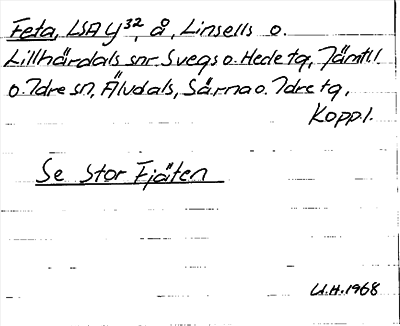 Feta, LSA y³², å, Linsells o.
Lillhärdals snr. Svegs o. Hede tg, Jämtl.l.
o. Idre sn, Älvdals, Särna o. Idre tg,
Kopp.l.
Se Stor Fjäten
U.H. 1968